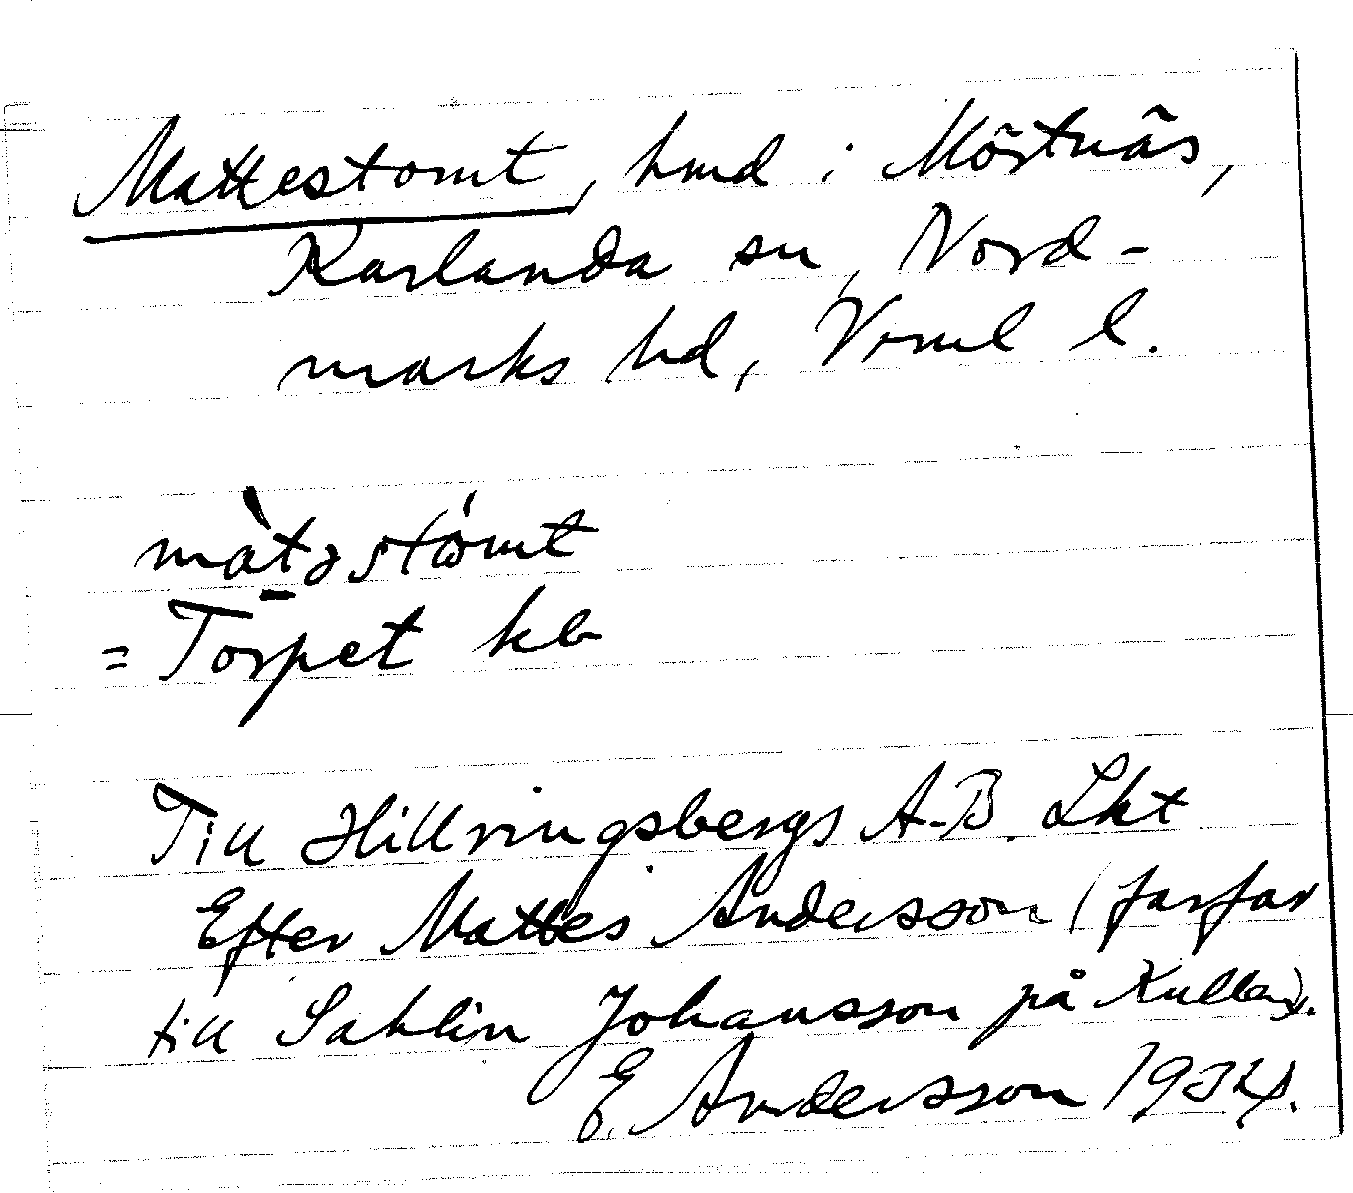 Mattestomt, hmd i Mörtnäs,
Karlanda sn, Nord-
marks hd, Vrml l.
màtəstómt
= Torpet kb
Till Hillringsbergs A-B. Lkt
Efter Mattes Andersson (farfar
till Sahlin Johansson på Kullen).
E Andersson 1934.